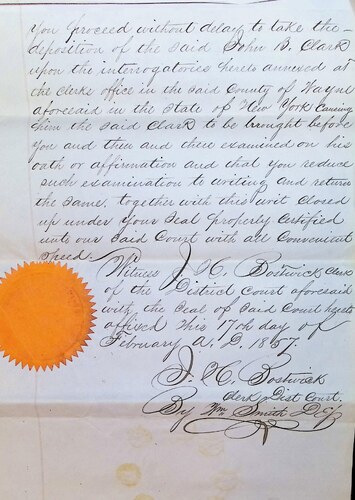 you proceed without delay to take the
deposition of the said John B. Clark
upon the interrogatories hereto annexed at
the clerks office in the said County of Wayne
aforesaid in the State of New York Causing
him the said Clark to be brought before
you and then and there examined on his
oath or affirmation and that you reduce
such examination to writing and return
the same, together with this writ closed
up under your Seal properly Certified
unto our said Court with all Convenient
Speed.
Witness J. H. Bostwick Clerk
of the District Court aforesaid
with the Seal of said Court hereto
affixed this 17th day of
February A. D. 1857.
J. H. Bostwick
Clerk Dist Court.
By Wm Smith Dey